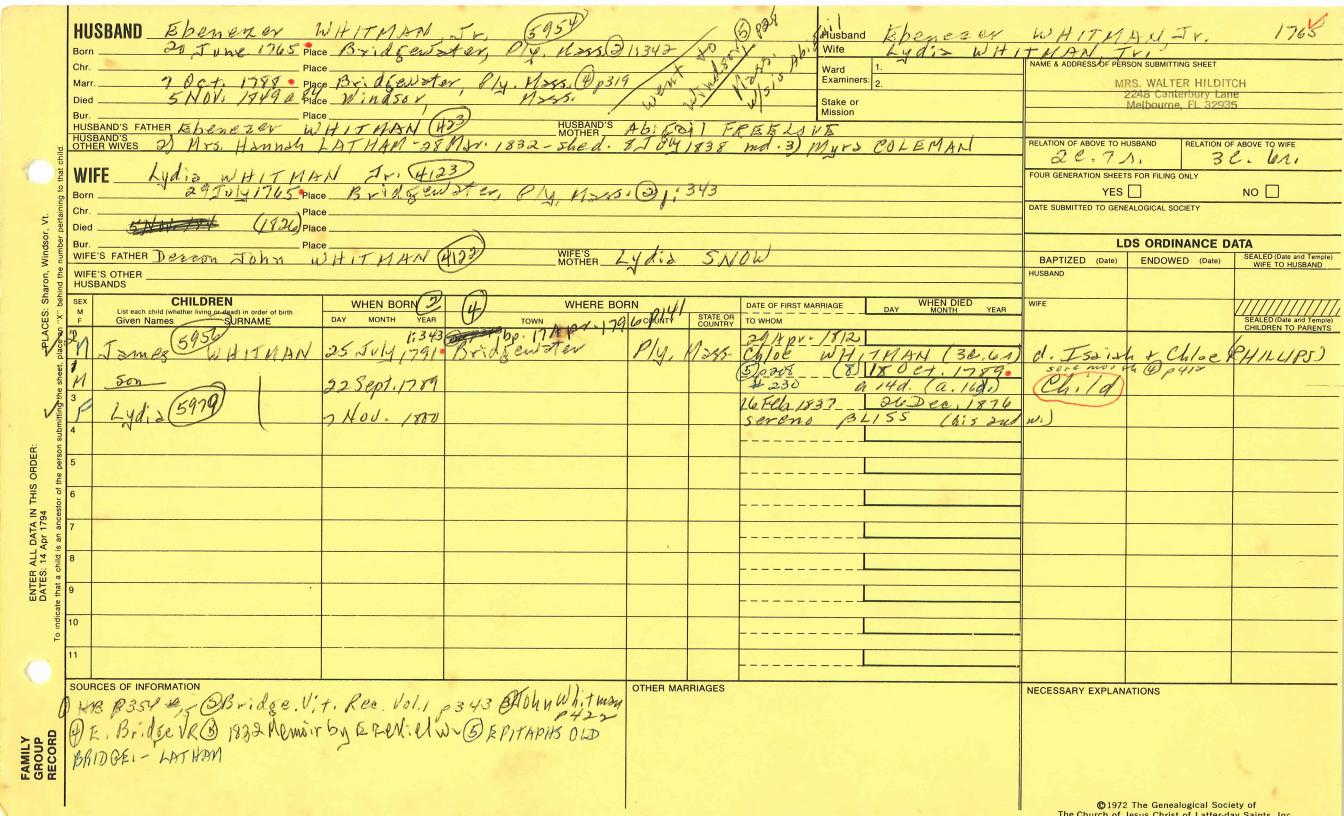 HUSBAND Ebenezer WHITMAN Jr. 5954
Born 20 June 1765 Place Bridgewater, Ply. Mass. 2 1:342
Chr. Place
Marr. 7 Oct. 1788 Place Bridgewater, Ply. Mass. 4 p319
Died 5 Nov. 1849 a 84 Place Windsor, Mass.
Bur. Place
went to Windsor, Mass. w/sis Abigail 5 p28
HUSBAND'S FATHER Ebenezer WHITMAN 423 HUSBAND'S MOTHER Abigail FREELOVE
HUSBAND'S OTHER WIVES 2) Mrs. Hannah LATHAM - 28 Mar. 1832 - shed. 8 July 1838 md. 3) Myra COLEMAN
WIFE Lydia WHITMAN Jr. 4123
Born 29 July 1765 Place Bridgewater, Ply, Mass. 2 1:343
Chr. Place
Died (1826) Place
Bur. Place
WIFE'S FATHER Deacon John WHITMAN 4122 WIFE'S MOTHER Lydia SNOW
WIFE'S OTHER HUSBANDS
Husband Ebenezer WHITMAN, Jr. 1765
Wife Lydia WHITMAN Jr.
Ward Examiners: 1.
2.
Stake or Mission
NAME & ADDRESS OF PERSON SUBMITTING SHEET
MRS. WALTER HILDITCH
2248 Canterbury Lane
Melbourne, FL 32935
RELATION OF ABOVE TO HUSBAND RELATION OF ABOVE TO WIFE
2c. 7r. 3c. 6r.
FOUR GENERATION SHEETS FOR FILING ONLY
YES NO
DATE SUBMITTED TO GENEALOGICAL SOCIETY
LDS ORDINANCE DATA
BAPTIZED (Date) ENDOWED (Date) SEALED (Date and Temple) WIFE TO HUSBAND
HUSBAND
WIFE
SEALED (Date and Temple) CHILDREN TO PARENTS
SEX M F CHILDREN WHEN BORN 2 4 WHERE BORN DATE OF FIRST MARRIAGE WHEN DIED
List each child (whether living or dead) in order of birth
Given Names SURNAME DAY MONTH YEAR TOWN COUNTY STATE OR COUNTRY TO WHOM DAY MONTH YEAR
2 5956 1:343 bp. 17 Apr. 1796 p141 29 Apr. 1812
M James WHITMAN 25 July 1791 Bridgewater Ply, Mass. Chloe WHITMAN (3c.6r) d. Isaiah & Chloe (PHILLIPS)
1 5 p208 (8) 18 Oct. 1789
M son 22 Sept. 1789 #230 a 14d. (a. 16d.) Child
3 16 Feb 1837 26 Dec. 1876
F Lydia 5979 7 Nov. 1800 Sereno BLISS (his 2nd w.)
4
5
6
7
8
9
10
11
SOURCES OF INFORMATION
2 Bridge. Vit. Rec. Vol. 1 p343 3 John Whitman p422
4 E. Bridge VR 1832 Memoir by Ezekiel W 5 EPITAPHS OLD
BRIDGE:- LATHAM
OTHER MARRIAGES
NECESSARY EXPLANATIONS
©1972 The Genealogical Society of
The Church of Jesus Christ of Latter-day Saints, Inc.
FAMILY GROUP RECORD
ENTER ALL DATA IN THIS ORDER:
DATES: 14 Apr 1794
PLACES: Sharon, Windsor, Vt.
To indicate that a child is an ancestor of the person submitting the sheet, place an "X" behind the number pertaining to that child